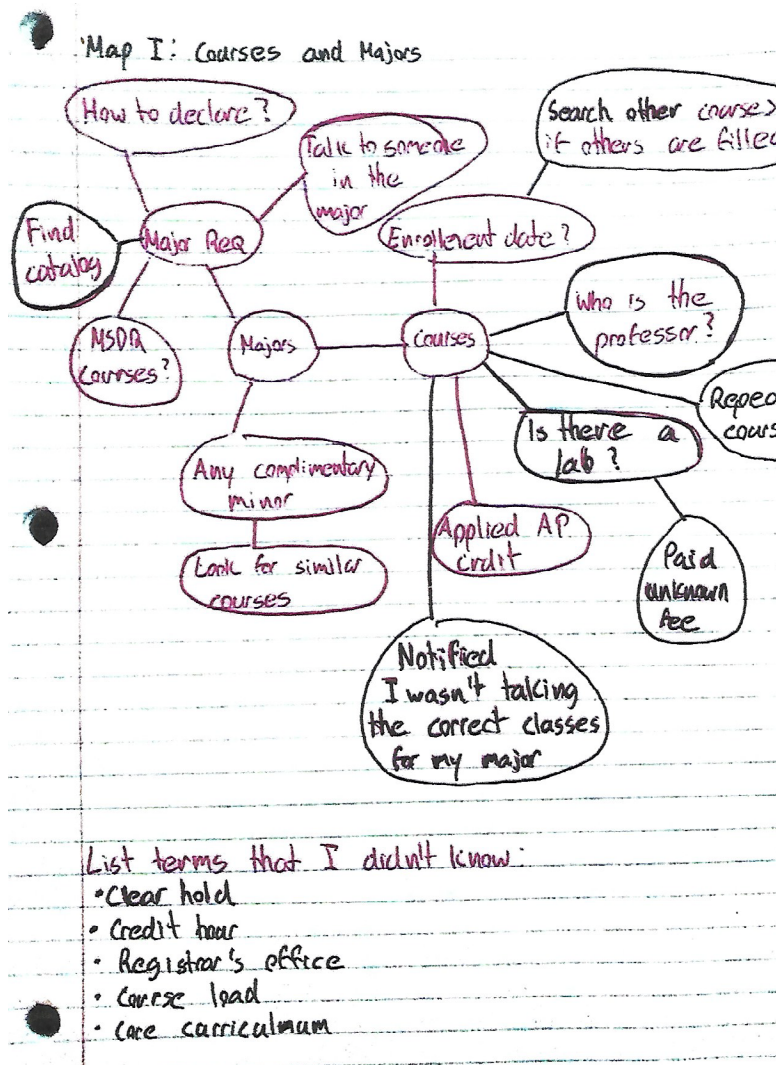 Map I: Courses and Majors
How to declare?
Talk to someone
in the
major
Search other courses
if others are filled
Find
catalog
Major Req
Enrollerent date?
MSDR
Courses?
Majors
Courses
Who is the
professor?
Repea
cours
Is there a
lab?
Any complimentary
minor
Look for similar
courses
Applied AP
crdit
Paid
unknown
fee
Notified
I wasn't taking
the correct classes
for my major
List terms that I didn't know:
• Clear hold
• Credit hour
• Registrar's office
• Course load
• Core carriculmum